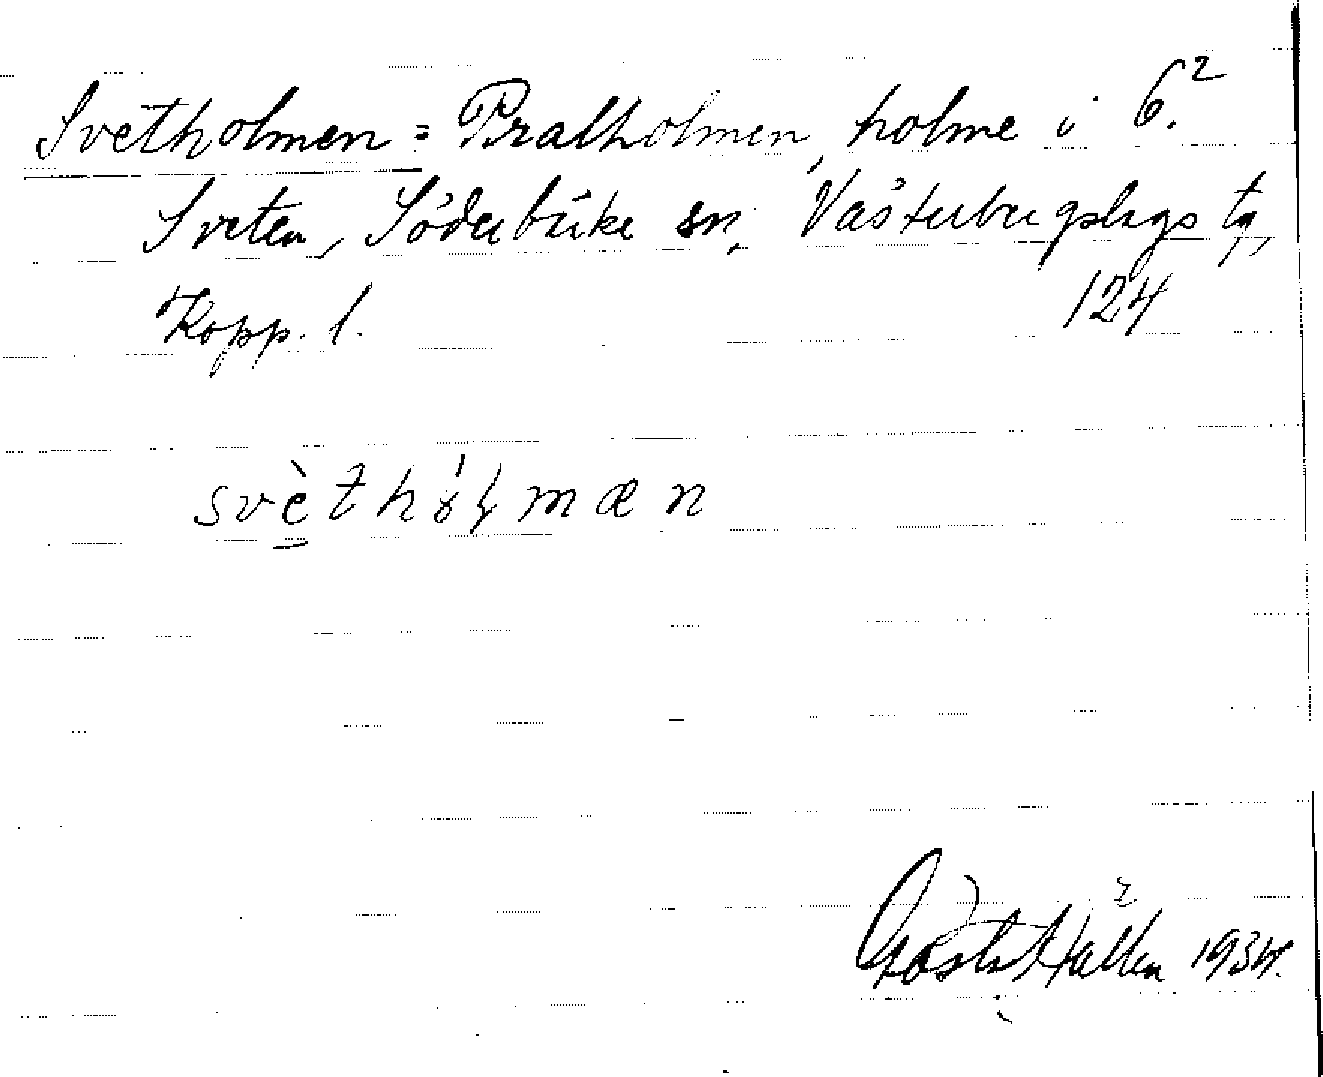 Svetholmen = Pratholmen, holme i 6.²
Sveten, Söderbärke sn, Västerbergslags tg,
Kopp. l. 124
svèthólmæn
Gösta Hallén 1934.